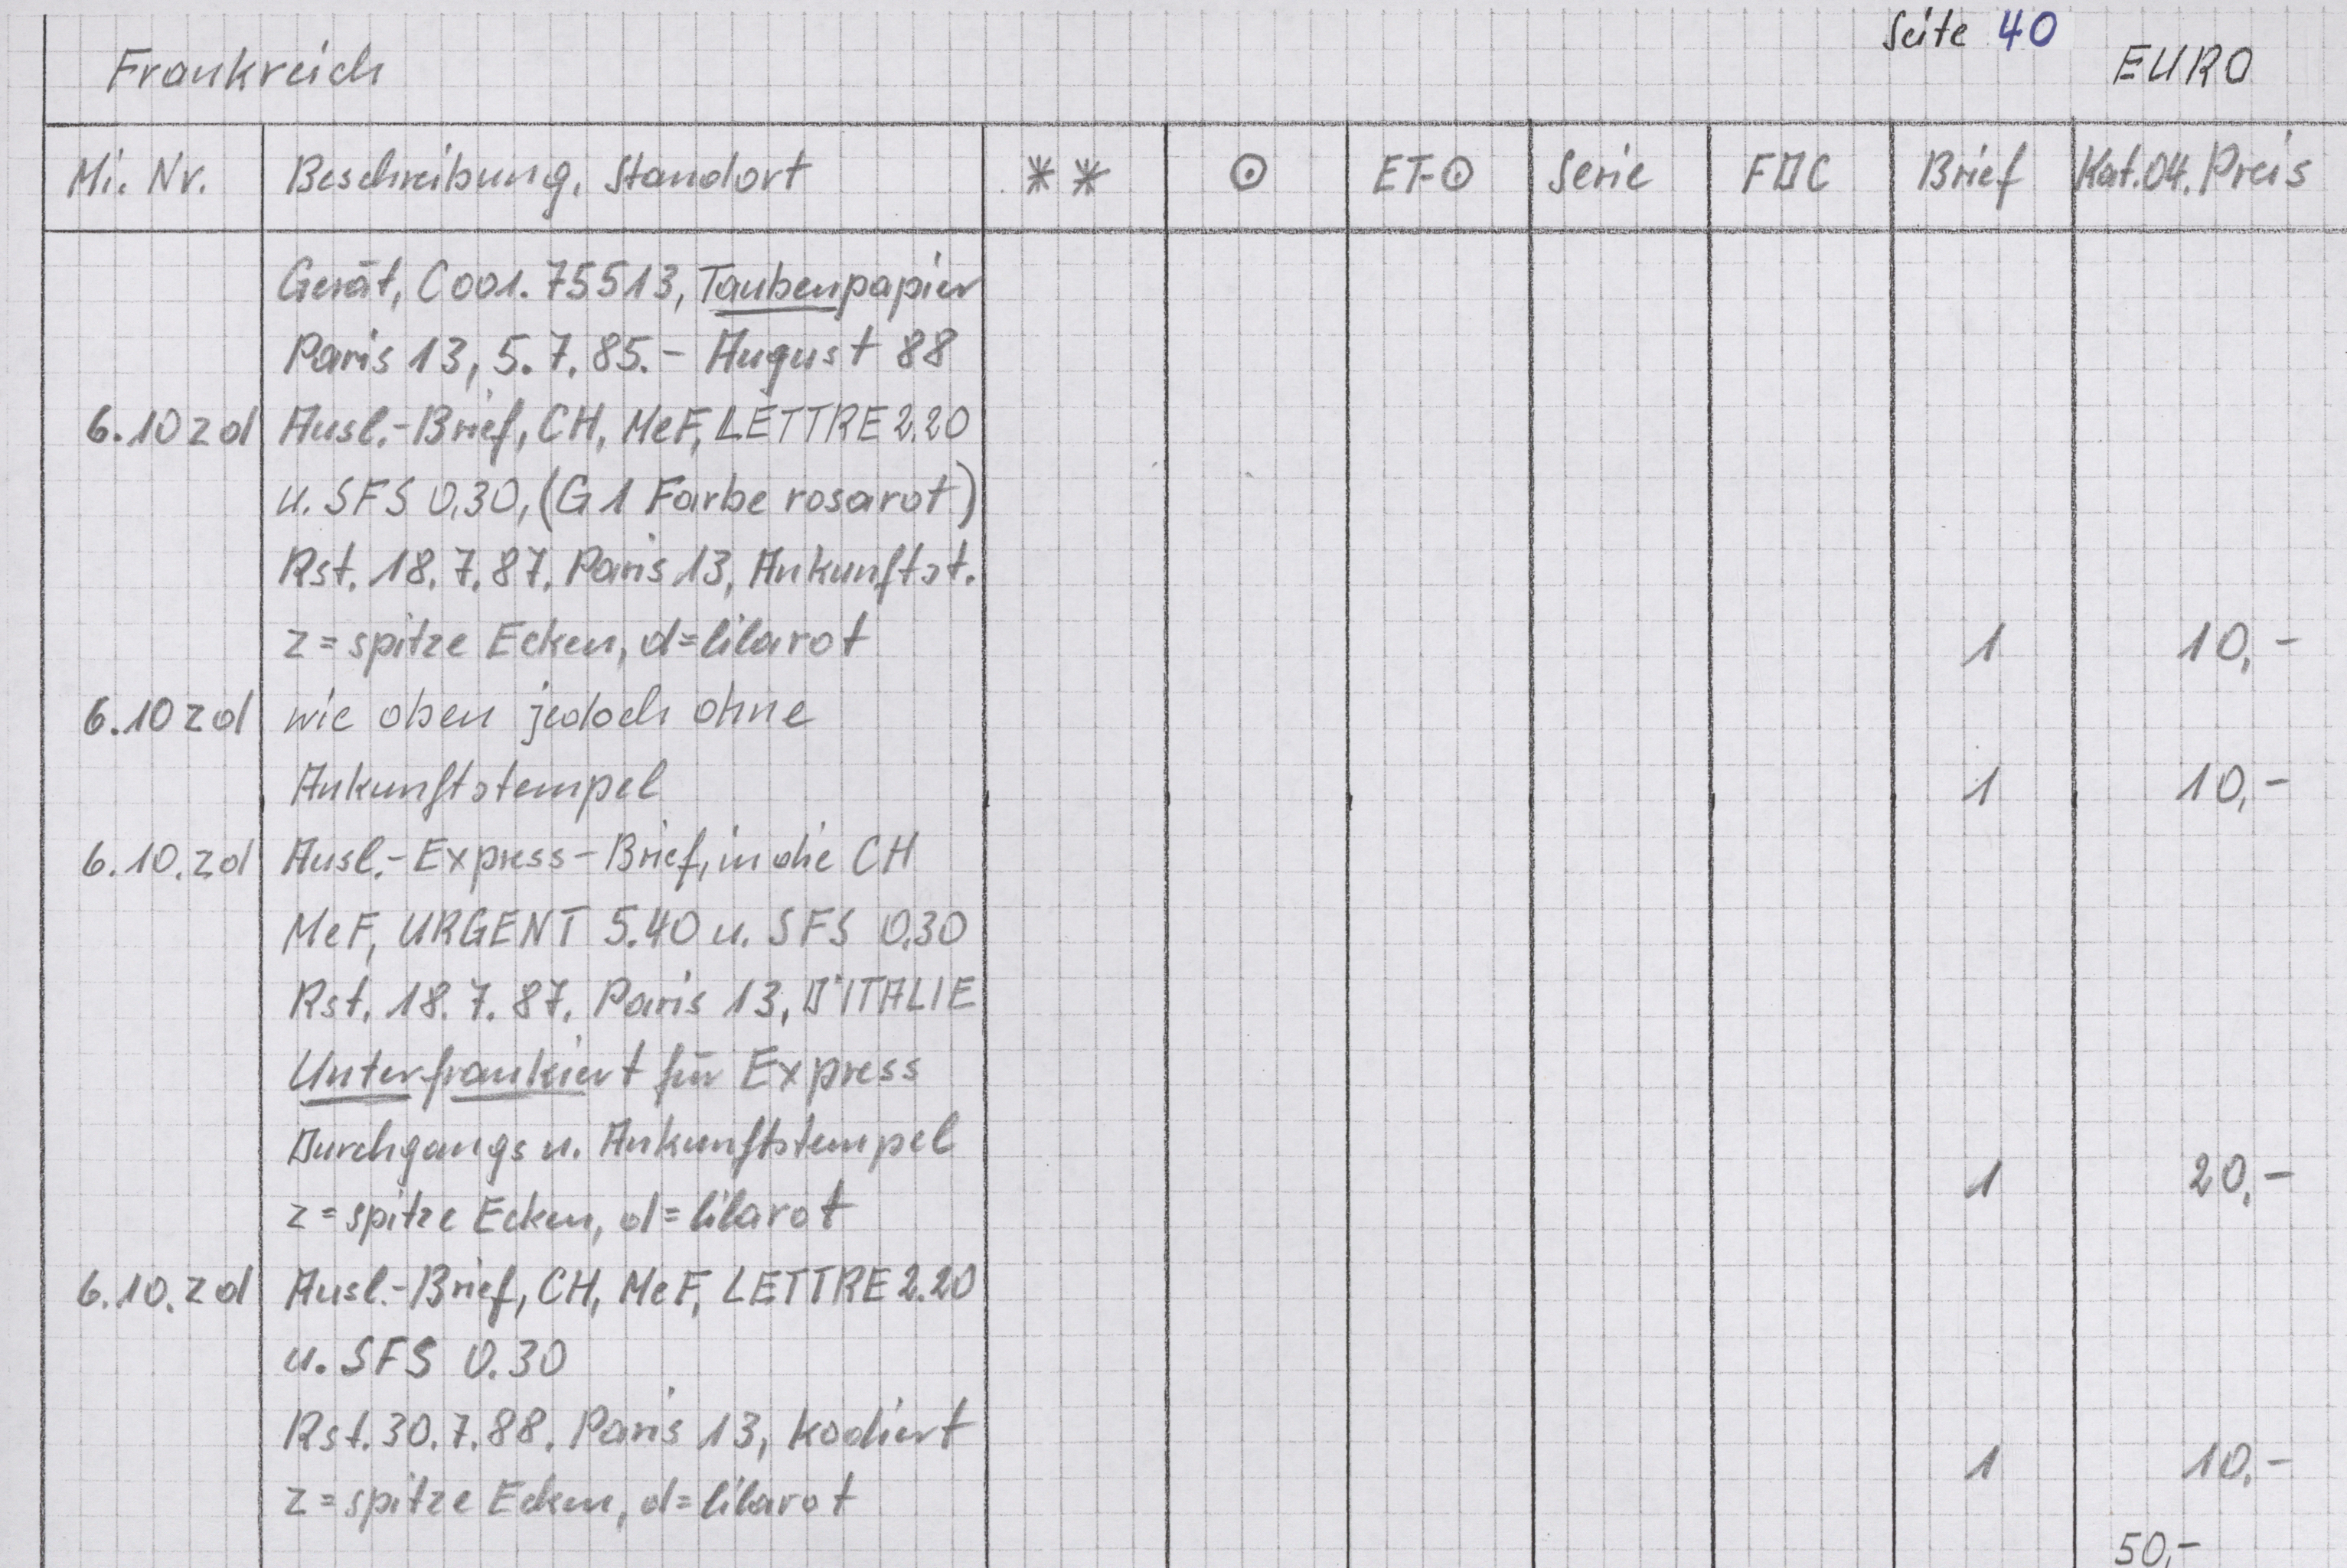 Seite 40
Frankreich EURO
Mi. Nr. Beschreibung, Standort ** ⊙ ET-⊙ Serie FDC Brief Kat.04. Preis
Gerät, C001.75513, Taubenpapier
Paris 13, 5.7.85.- August 88
6.10 z d Ausl.-Brief, CH, MeF, LETTRE 2.20
u. SFS 0.30, (G1 Farbe rosarot)
Rst. 18.7.87. Paris 13, Ankunftst.
z = spitze Ecken, d = lilarot 1 10,-
6.10 z d wie oben jedoch ohne
Ankunftstempel 1 10,-
6.10.z d Ausl.-Express-Brief, in die CH
MeF, URGENT 5.40 u. SFS 0.30
Rst. 18.7.87. Paris 13, D'ITALIE
Unterfrankiert für Express
Durchgangs u. Ankunftstempel 1 20,-
z = spitze Ecken, d = lilarot
6.10.z d Ausl.-Brief, CH, MeF, LETTRE 2.20
u. SFS 0.30
Rst. 30.7.88. Paris 13, kodiert 1 10,-
z = spitze Ecken, d = lilarot
50,-